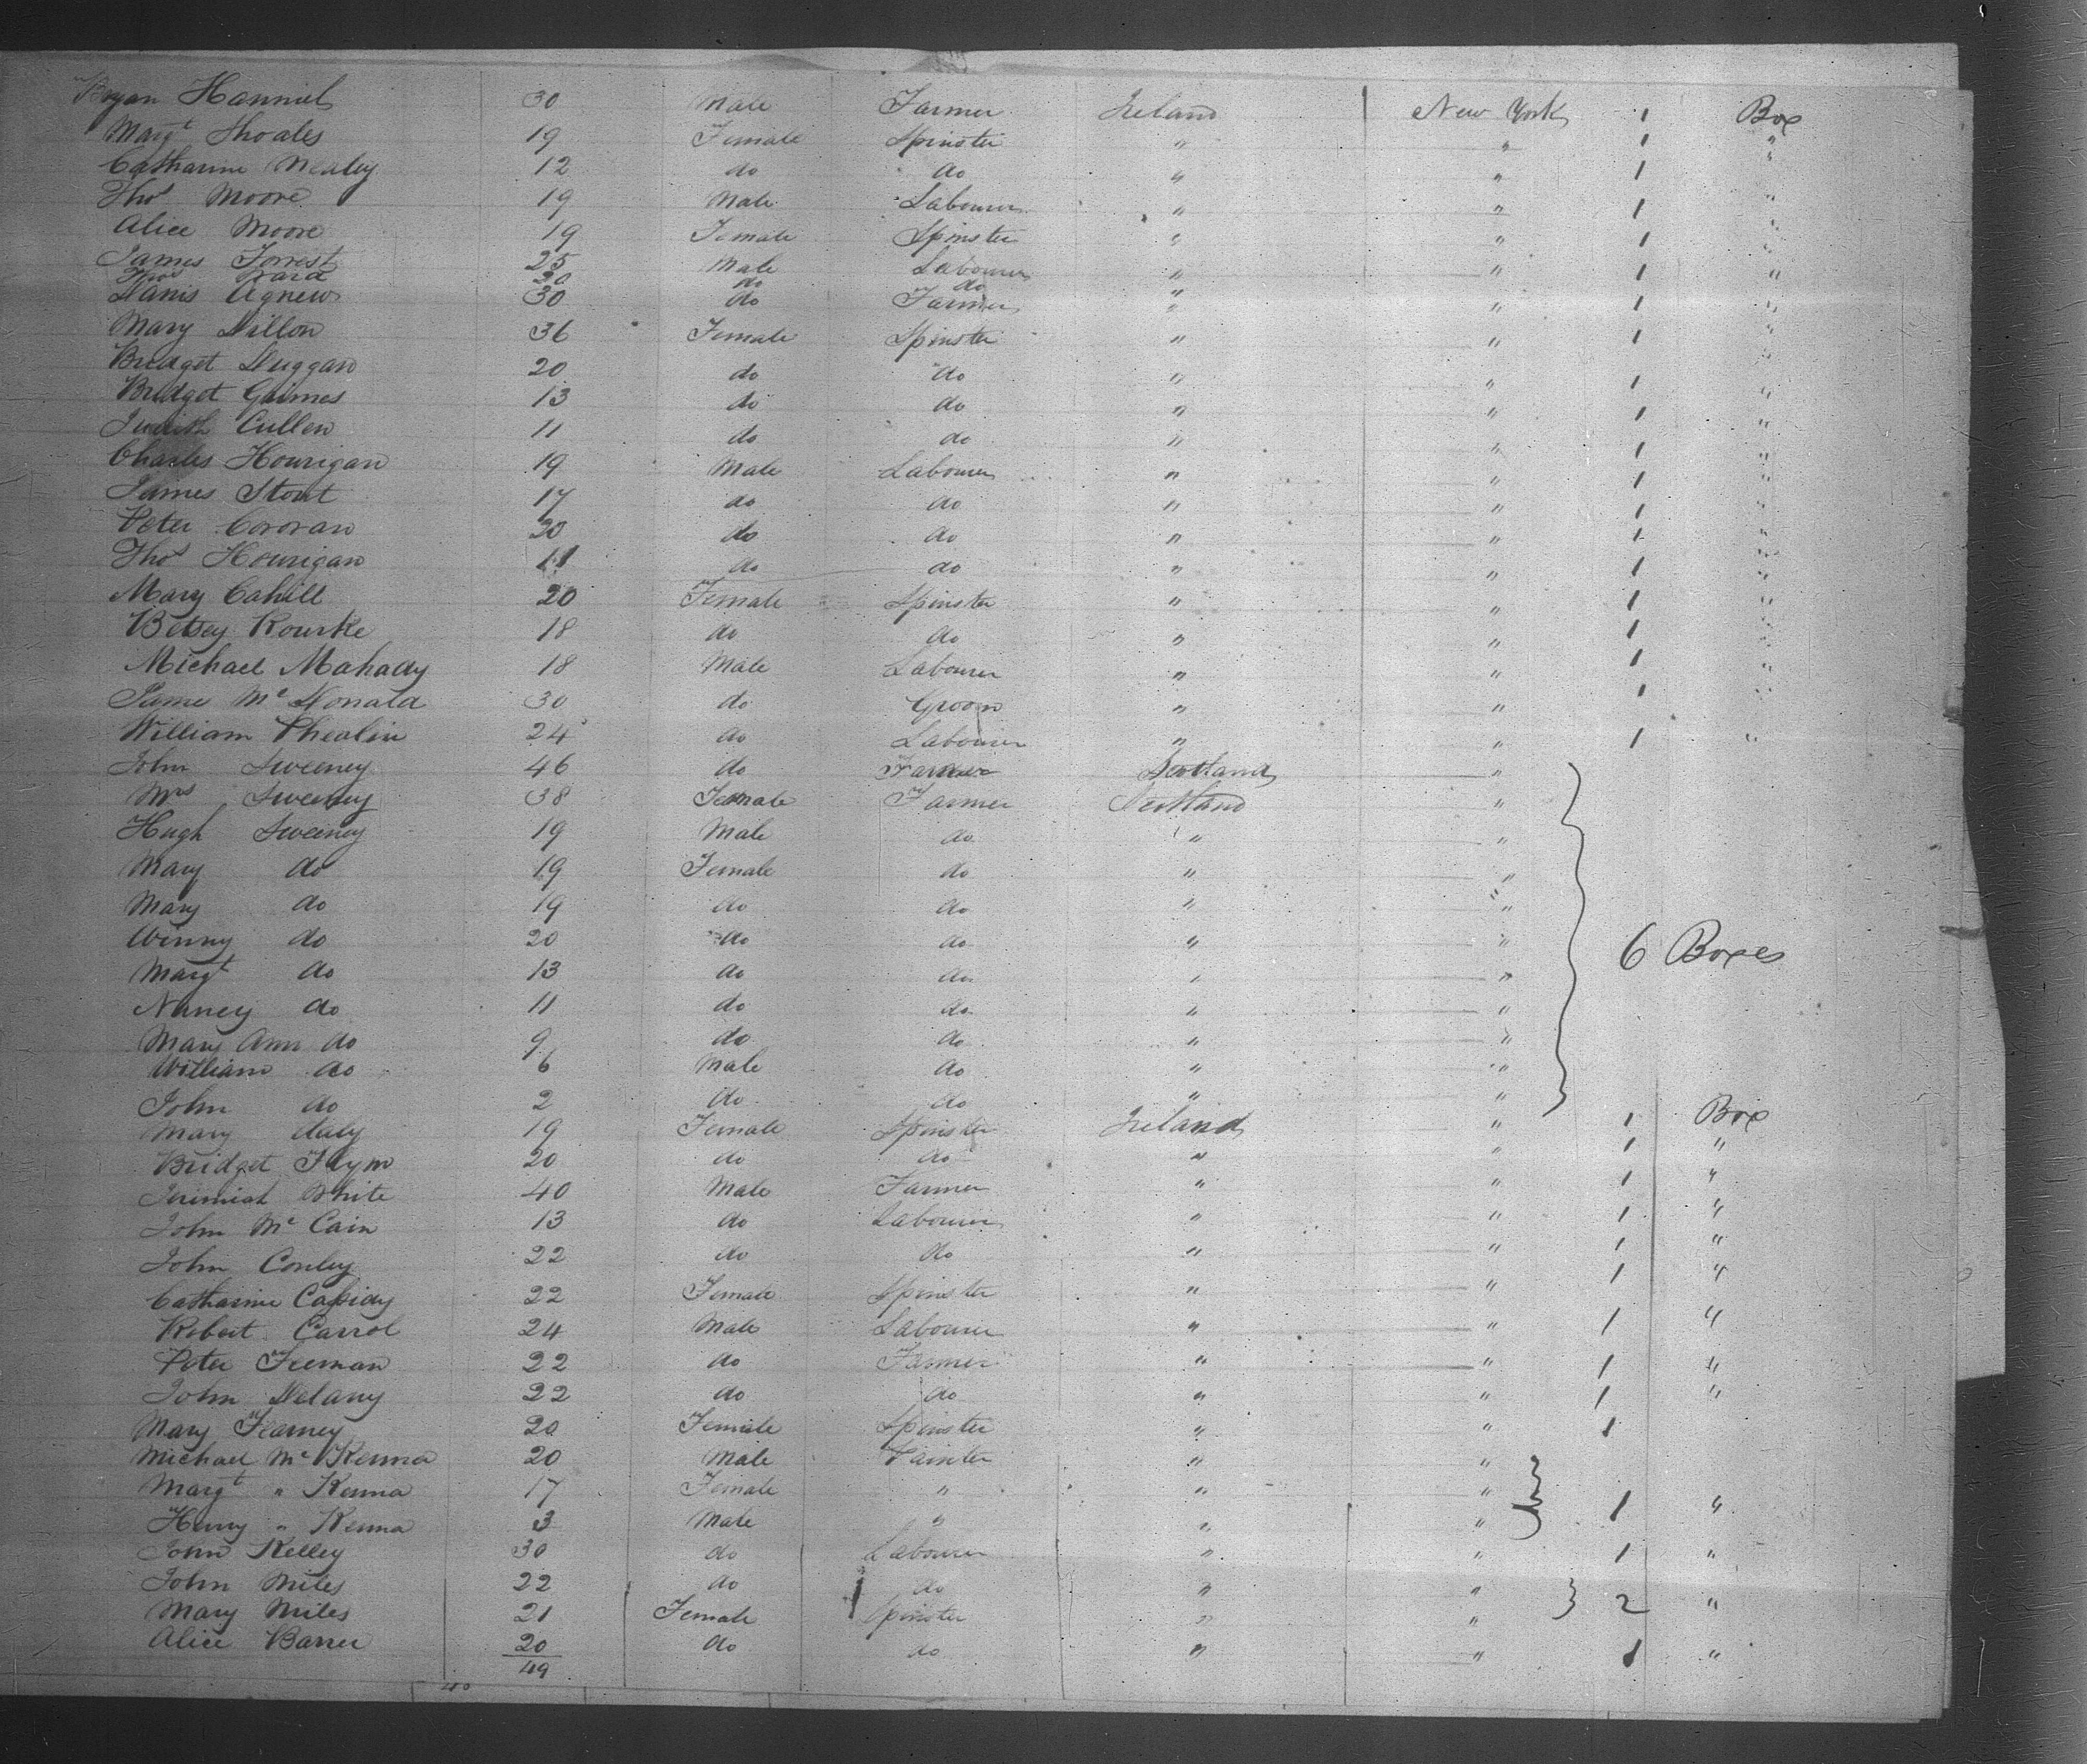 Bryan Hanniel 30 Male Farmer Ireland New York 1 Box
Margt Shoales 19 Female Spinster " " 1 "
Catharine Nealey 12 do do " " 1 "
Thos Moore 19 Male Labourer " " 1 "
Alice Moore 19 Female Spinster " " 1 "
James Forrest 25 Male Labourer " " 1 "
Thos Ward 20 do do "
Danis Agnew 30 do Farmer " " 1 "
Mary Dillon 36 Female Spinster " " 1 "
Bridget Duggan 20 do do " " 1 "
Bridget Grimes 13 do do " " 1 "
Judith Cullen 11 do do " " 1 "
Charles Hourigan 19 Male Labourer " " 1 "
James Stout 17 do do " " 1 "
Peter Cororan 20 do do " " 1 "
Thos Hourigan 11 do do " " 1 "
Mary Cahill 20 Female Spinster " " 1 "
Betsey Rourke 18 do do " " 1 "
Michael Mahady 18 Male Labourer " " 1 "
Jame Mc Donald 30 do Groom " " 1 "
William Phealin 24 do Labourer " " 1 "
John Sweeney 46 do Farmer Scotland "
Mrs Sweeney 38 Female Farmer Scotland "
Hugh Sweeney 19 Male do " "
Mary do 19 Female do " "
Mary do 19 do do " "
Winny do 20 do do " " 6 Boxes
Margt do 13 do do " "
Nancy do 11 do do " "
Mary Ann do 9 do do " "
William do 6 Male do " "
John do 2 do do " "
Mary Daly 19 Female Spinster Ireland " 1 Box
Bridget Flynn 20 do do " " 1 "
Jerimiah White 40 Male Farmer " " 1 "
John Mc Cain 13 do Labourer " " 1 "
John Conley 22 do do " " 1 "
Catharine Cassidy 22 Female Spinster " " 1 "
Robert Carrol 24 Male Labourer " " 1 "
Peter Feeman 22 do Farmer " " 1 "
John Delany 22 do do " " 1 "
Mary Fearney 20 Female Spinster " " 1
Michael Mc Kenna 20 Male Painter " "
Margt " Kenna 17 Female " " " 1 "
Henry " Kenna 3 Male " " "
John Kelley 30 do Labourer " " 1 "
John Miles 22 do do " " 2 "
Mary Miles 21 Female Spinster " "
Alice Barrer 20 do do " " 1 "
49